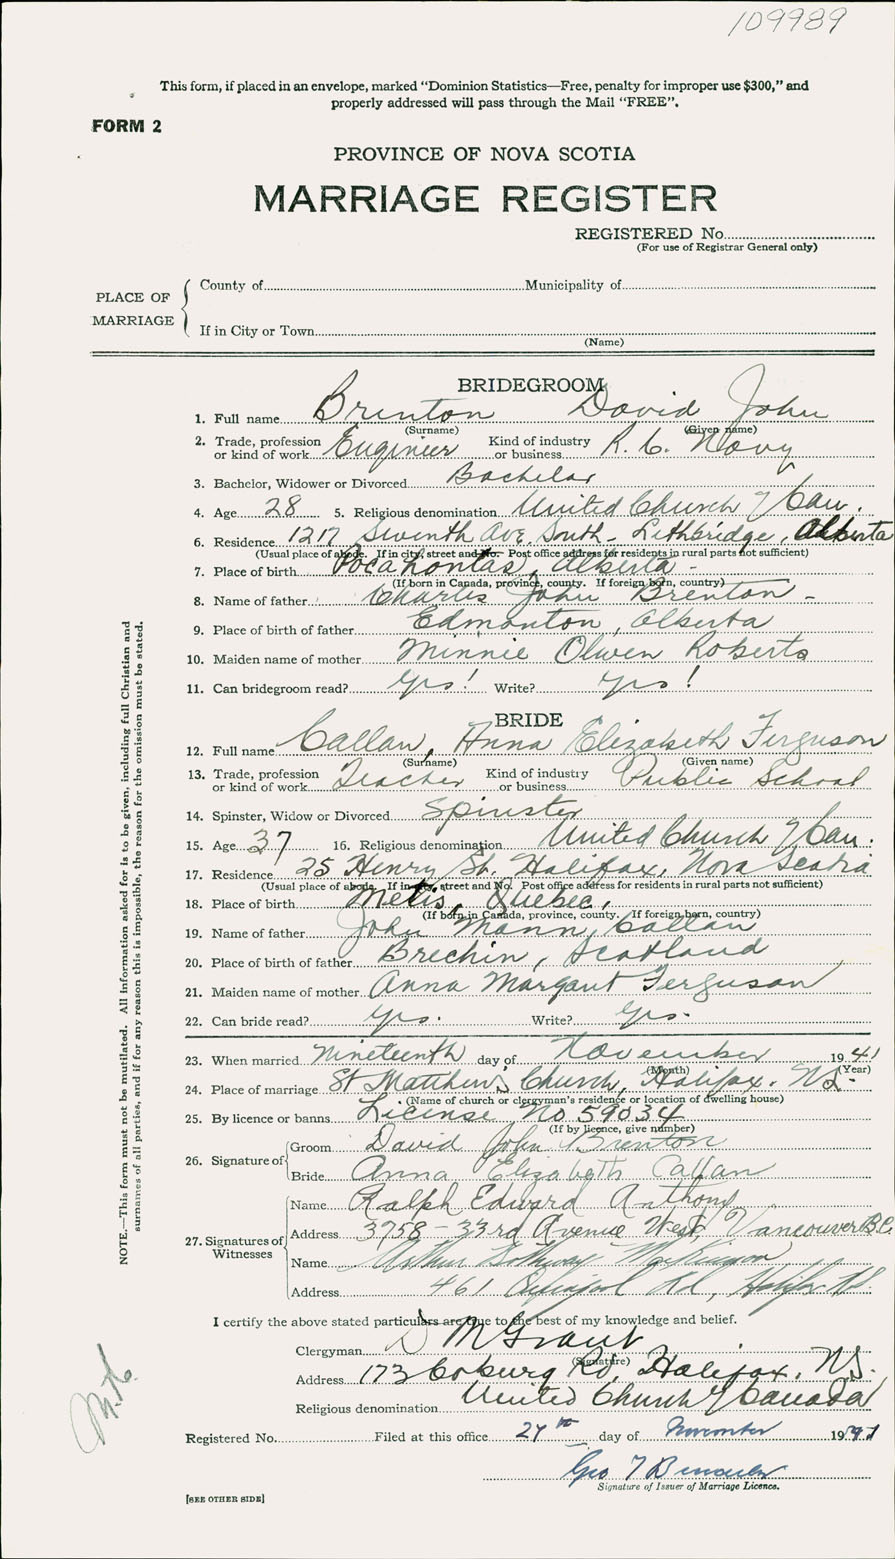 109989
This form, if placed in an envelope, marked "Dominion Statistics—Free, penalty for improper use $300," and
properly addressed will pass through the Mail "FREE".
FORM 2
PROVINCE OF NOVA SCOTIA
MARRIAGE REGISTER
REGISTERED No.
(For use of Registrar General only)
PLACE OF MARRIAGE
County of Municipality of
If in City or Town
(Name)
BRIDEGROOM
1. Full name Brenton David John
(Surname) (Given name)
2. Trade, profession or kind of work Engineer Kind of industry or business R. C. Navy
3. Bachelor, Widower or Divorced Bachelor
4. Age 28 5. Religious denomination United Church of Can.
6. Residence 1217 Seventh Ave. South - Lethbridge, Alberta
(Usual place of abode. If in city, street and No. Post office address for residents in rural parts not sufficient)
7. Place of birth Pocahontas, Alberta -
(If born in Canada, province, county. If foreign born, country)
8. Name of father Charles John Brenton -
9. Place of birth of father Edmonton, Alberta
10. Maiden name of mother Minnie Olwen Roberts
11. Can bridegroom read? Yes! Write? Yes!
BRIDE
12. Full name Callan, Anna Elizabeth Ferguson
(Surname) (Given name)
13. Trade, profession or kind of work Teacher Kind of industry or business Public School
14. Spinster, Widow or Divorced Spinster
15. Age 37 16. Religious denomination United Church of Can.
17. Residence 25 Henry St. Halifax, Nova Scotia
(Usual place of abode. If in city, street and No. Post office address for residents in rural parts not sufficient)
18. Place of birth Metis, Quebec,
(If born in Canada, province, county. If foreign born, country)
19. Name of father John Mann Callan
20. Place of birth of father Brechin, Scotland
21. Maiden name of mother Anna Margaut Ferguson
22. Can bride read? Yes. Write? Yes.
23. When married Nineteenth day of November 1941
(Month) (Year)
24. Place of marriage St Matthew's Church, Halifax. N.S.
(Name of church or clergyman's residence or location of dwelling house)
25. By licence or banns License No 59034
(If by licence, give number)
26. Signature of Groom David John Brenton
Bride Anna Elizabeth Callan
27. Signatures of Witnesses
Name Ralph Edward Anthony
Address 3758 - 33rd Avenue West, Vancouver B.C.
Name Arthur MacKinnon
Address 461 Rd, Halifax N.S.
I certify the above stated particulars are true to the best of my knowledge and belief.
Clergyman D M Grant
(Signature)
Address 173 Coburg Rd, Halifax, N.S.
Religious denomination United Church of Canada
Registered No. Filed at this office 27th day of November 1941
Geo T
Signature of Issuer of Marriage Licence.
[SEE OTHER SIDE]
NOTE.—This form must not be mutilated. All information asked for is to be given, including full Christian and
surnames of all parties, and if for any reason this is impossible, the reason for the omission must be stated.